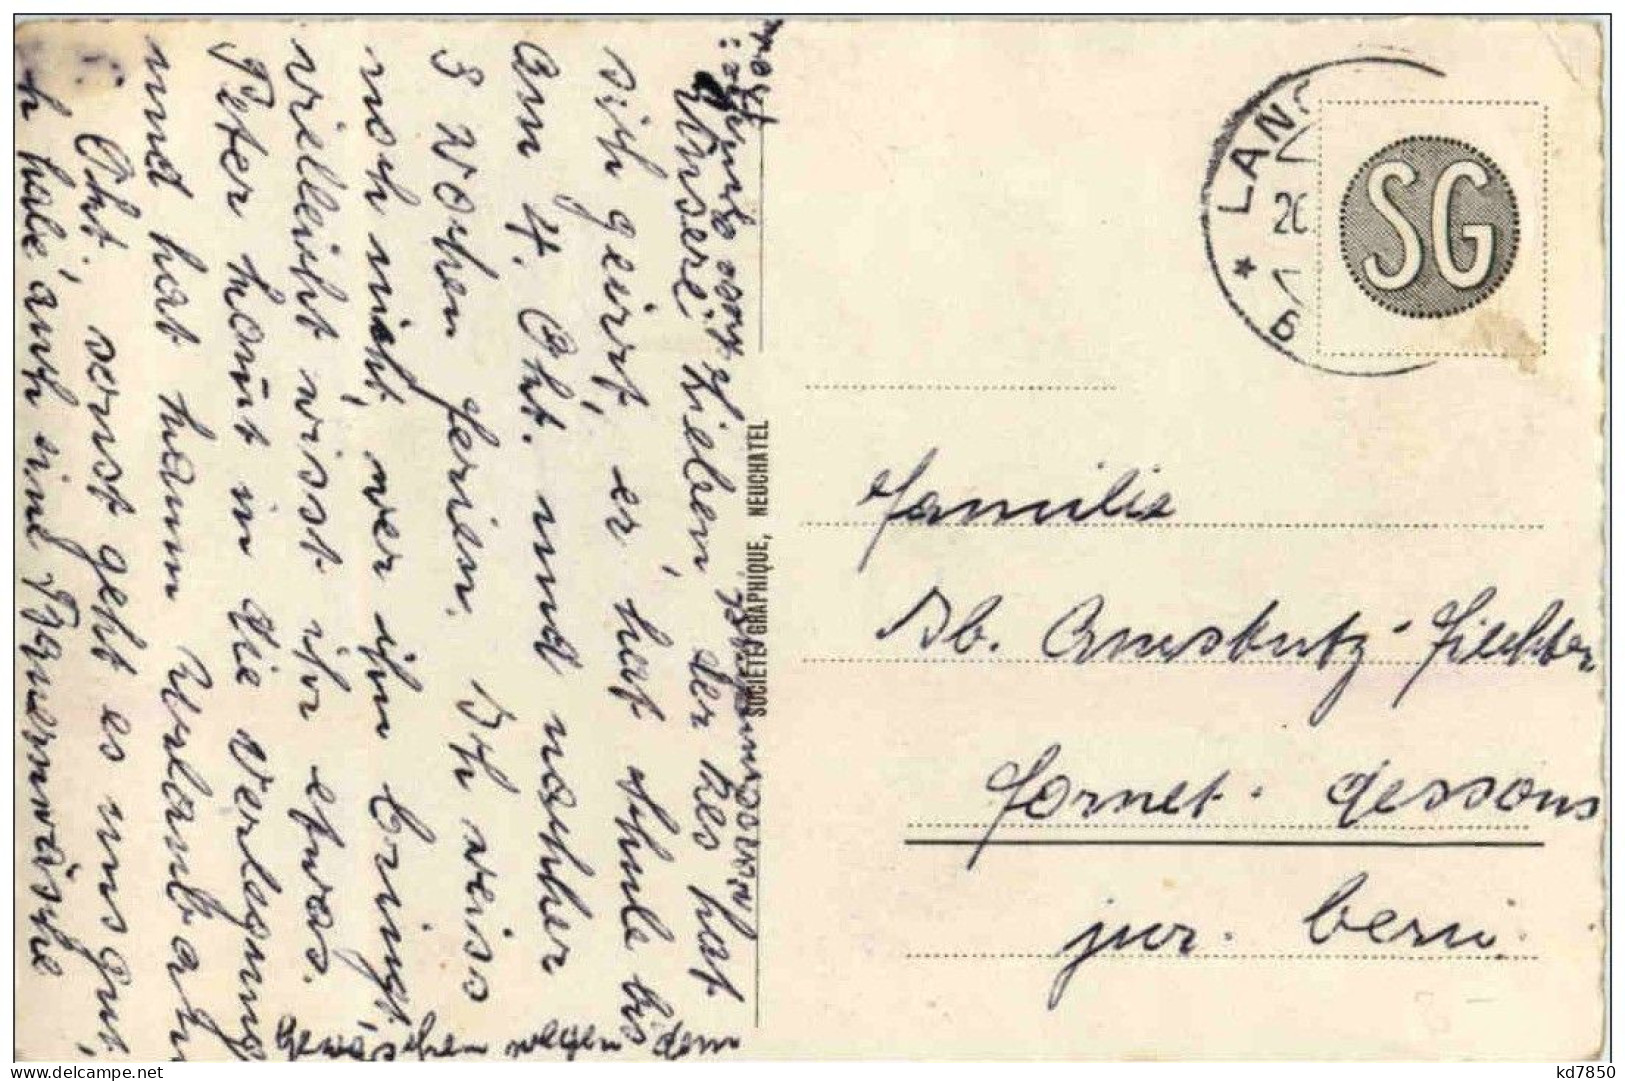 Unsere Lieben, der Kes hat
sich geirrt, er hat Schule bis
am 4. Okt. und nachher
3 Wochen ferien. Ich weiss
noch nicht, wer ihn bringt,
vielleicht wisst ihr etwas.
Peter komt in die Verlegung
und hat kaum Urlaub a
Okt. sonst geht es uns gut,
h habe auch eine Bauernwäsche
gewaschen wegen dem
SOCIETE GRAPHIQUE, NEUCHATEL
LANG
20
6
SG
Familie
Sb. Amstutz-Fiechter
Fornet-dessous
jur. bern.
kd7850